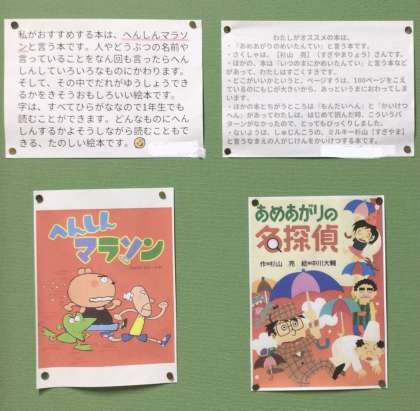 私がおすすめする本は、へんしんマラソ
ンと言う本です。人やどうぶつの名前や
言っていることをなん回も言ったらへん
しんしていろいろなものにかわります。
そして、その中でだれがゆうしょうでき
るかをきそうおもしろいい絵本です。
字は、すべてひらがななので1年生でも
読むことができます。どんなものにへん
しんするかよそうしながら読むこともで
きる、たのしい絵本です。
わたしがオススメの本は、
・「あめあがりのめいたんてい」と言う本です。
・さくしゃは、【杉山 亮】(すぎやまりょう)さんです。
・ほかの、本は「いつのまにかめいたんてい」と言う本などが
あって、わたしはすごくすきです。
・どこがいいかというと、ページすうは、100ページをこえ
ているのにもじが大きいから、あっというまにおわってしま
います。
・ほかの本とちがうところは「もんだいへん」と「かいけつ
へん」があってわたしは、はじめて読んだ時、こういうパ
ターンがなかったので、とってもびっくりしました。
・ないようは、しゅじんこうの、ミルキー杉山【すぎやま】
と言うなまえの人がじけんをかいけつする本です。
へんしん
マラソン
あめあがりの
名探偵
作 杉山 亮 絵 中川大輔